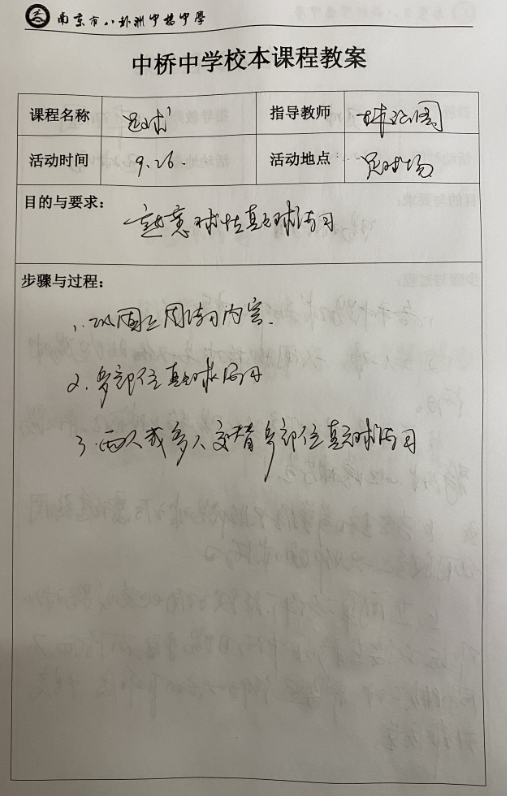 南京市八卦洲中桥中学
中桥中学校本课程教案
课程名称 足球 指导教师
活动时间 9.26. 活动地点 足球场
目的与要求:
熟悉球性颠球练习
步骤与过程:
1. 巩固上周练习内容.
2. 多部位颠球练习
3. 两人或多人交替多部位颠球练习